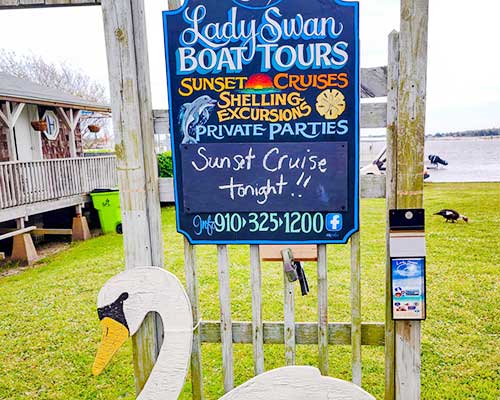 Lady Swan
BOAT TOURS
SUNSET CRUISES
SHELLING
EXCURSIONS
PRIVATE PARTIES
Sunset Cruise
tonight!!
Info 910·325·1200 f